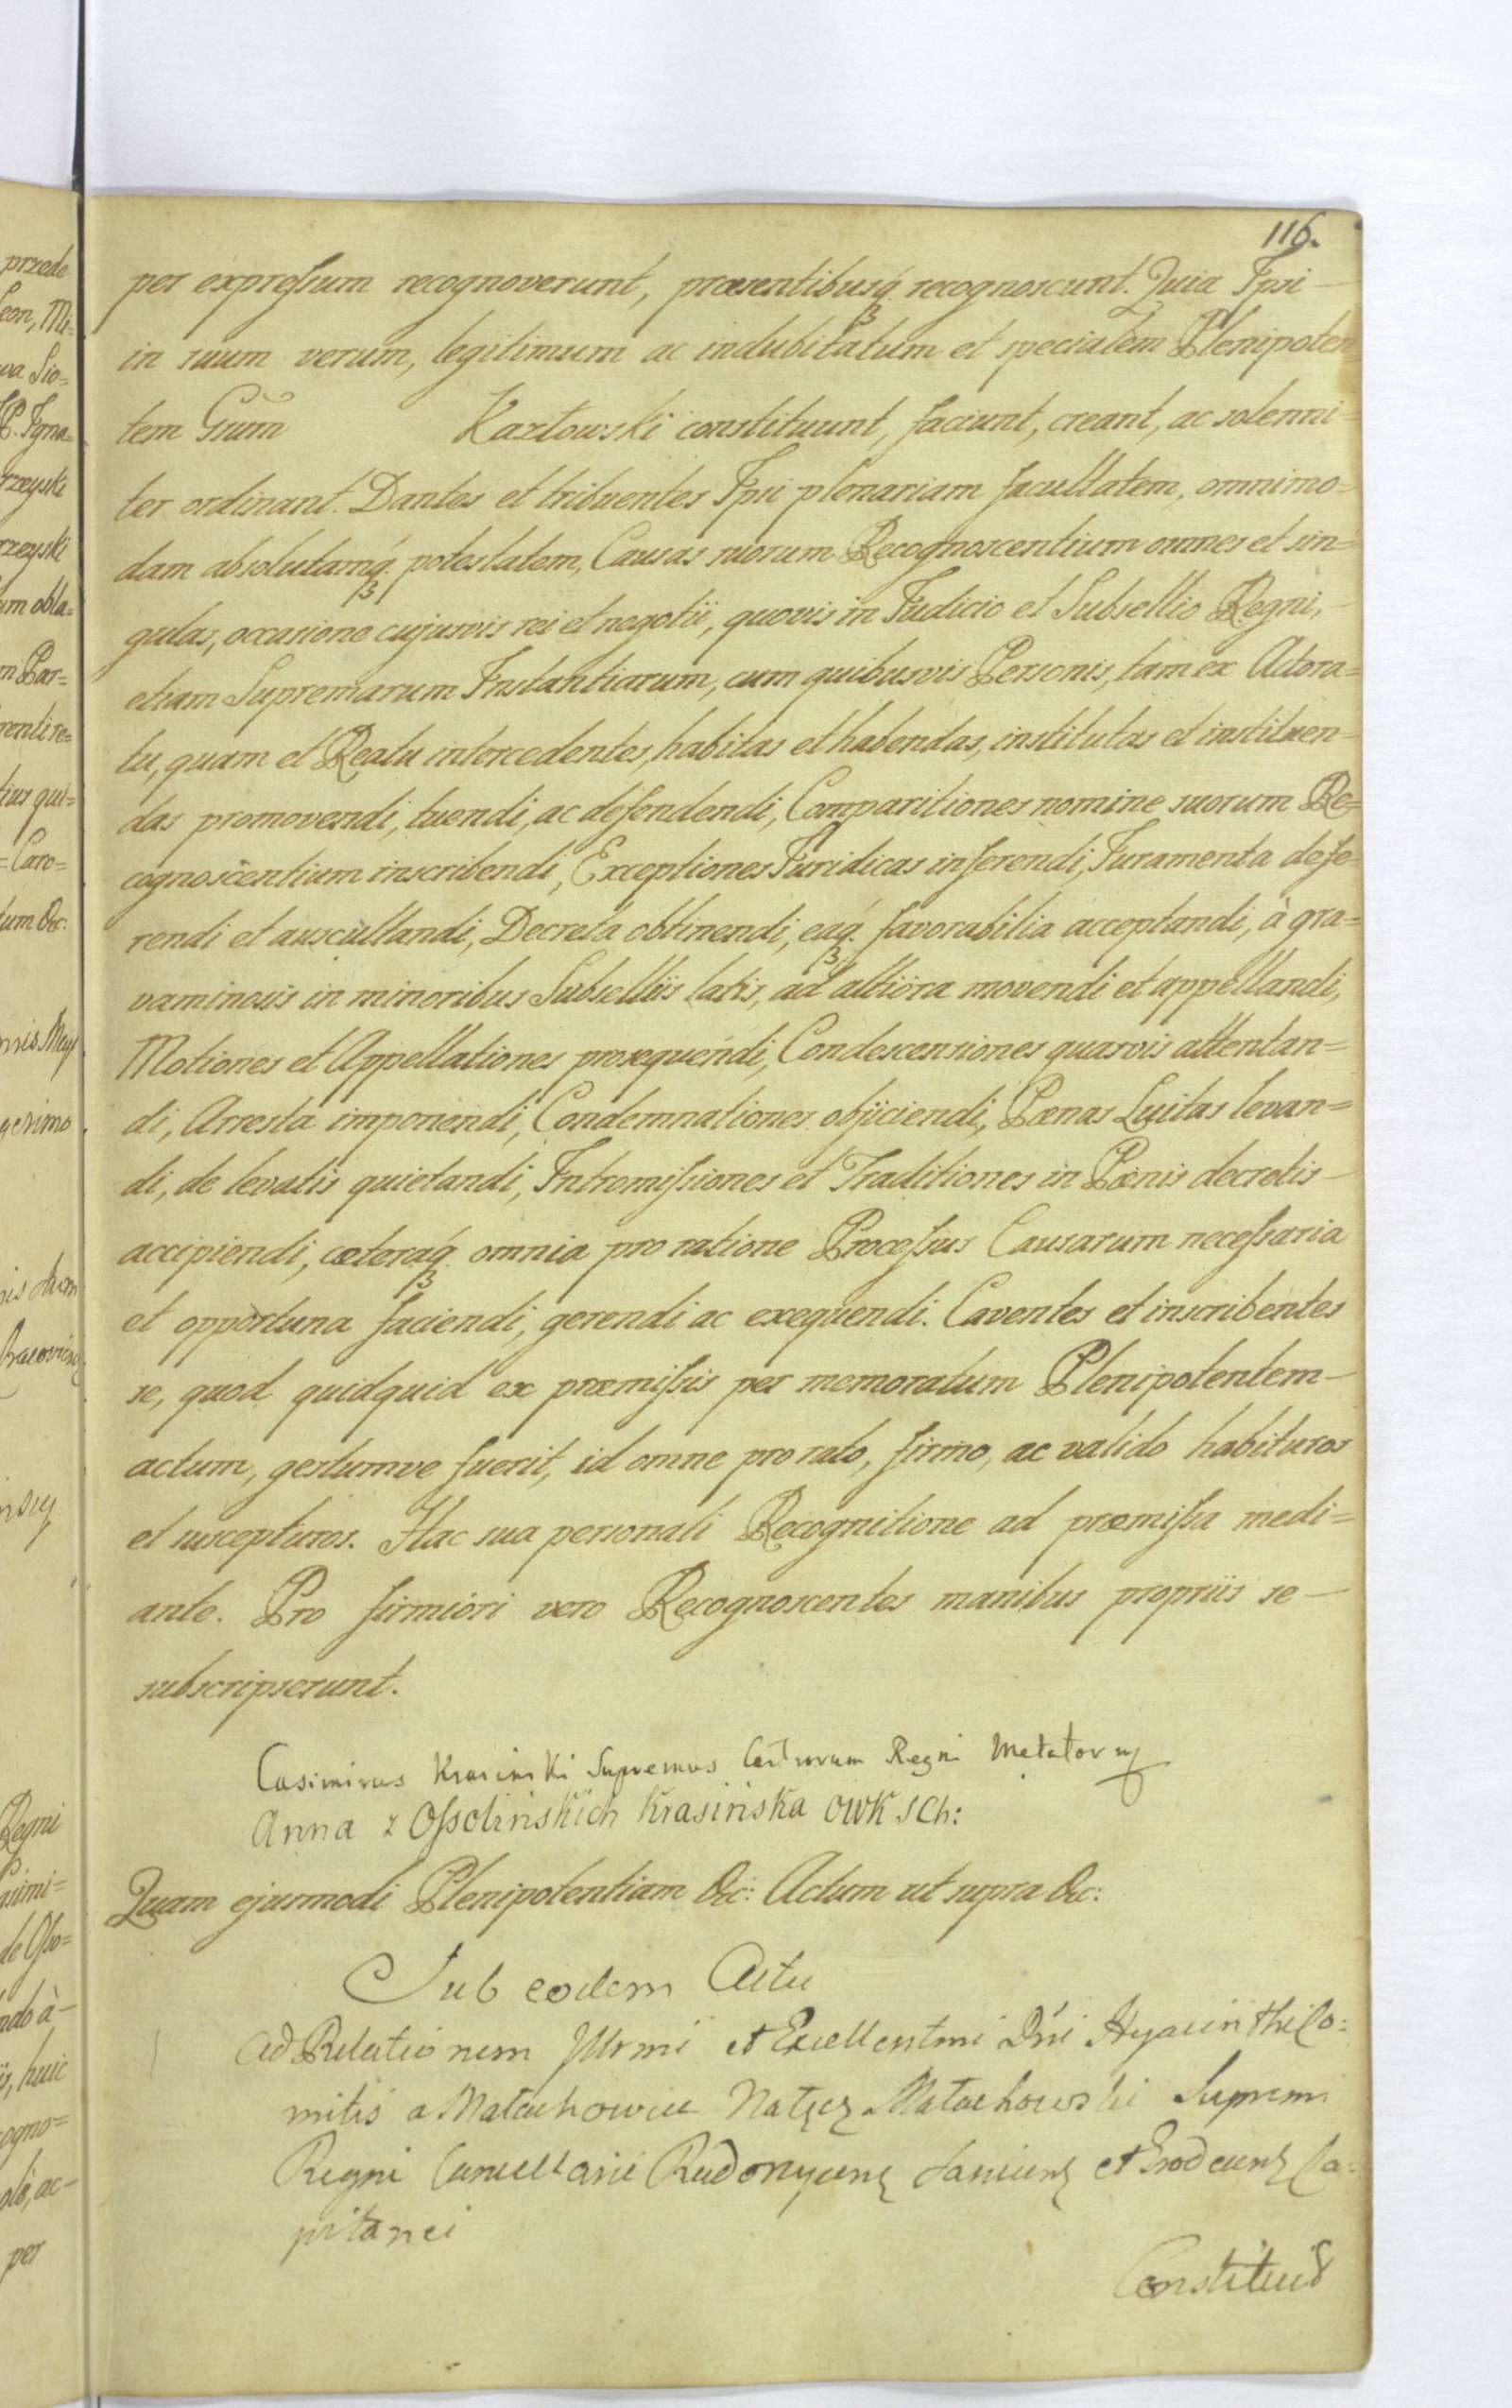 116.
per expressum recognoverunt, præsentibusq́ꝫ recognoscunt. Quia Ipsi —
in suum verum, legitimum ac indubitatum et specialem Plenipoten
tem Grum̃ Kazłowski constituunt, faciunt, creant, ac solenni=
ter ordinant. Dantes et tribuentes Ipsi plenariam facultatem, omnimo=
dam absolutamq́ꝫ potestatem, Causas suorum Recognoscentium omnes et sin=
gulas, occasione cujusvis rei et negotii, quovis in Judicio et Subsellio Regni, —
etiam Supremarum Instantiarum, cum quibusvis Personis, tam ex Actora=
tu, quam et Reatu intercedentes, habitas et habendas, institutas et instituen=
das promovendi, tuendi, ac defendendi, Comparitiones nomine suorum Re=
cognoscentium inscribendi, Exceptiones Juridicas inferendi, Juramenta defe=
rendi et auscultandi, Decreta obtinendi, eaq́ꝫ favorabilia acceptandi, à gra=
vaminosis in minoribus Subselliis latis, ad altiora movendi et appellandi,
Motiones et Appellationes prosequendi, Condescensiones quasvis attentan=
di, Arresta imponendi, Condemnationes objiciendi, Pœnas Luitas levan=
di, de levatis quietandi, Intromissiones et Traditiones in Pœnis decretis —
accipiendi, cæteraq́ꝫ omnia pro ratione Processus Causarum necessaria
et opportuna faciendi, gerendi ac exequendi. Caventes et inscribentes
se, quod quidquid ex præmissis per memoratum Plenipotentem —
actum, gestumve fuerit, id omne pro rato, firmo, ac valido habituros
et suscepturos. Hac sua personali Recognitione ad præmissa medi=
ante. Pro firmiori vero Recognoscentes manibus propriis se —
subscripserunt.
Casimirus Krasinski Supremus Castrorum Regni Metator mp
Anna z Ossolińskich Krasińska OWK SCh:
Quam ejusmodi Plenipotentiam &c: Actum ut supra &c:
Sub eodem Actu
Ad Relationem Illrmi et Excellentmi Dńi Hyacinthi Co:
mitis a Małachowice Nałęcz Małachowski Supremi
Regni Cancellarii Radomien et Grodecen Ca:
pitanei
Constitud